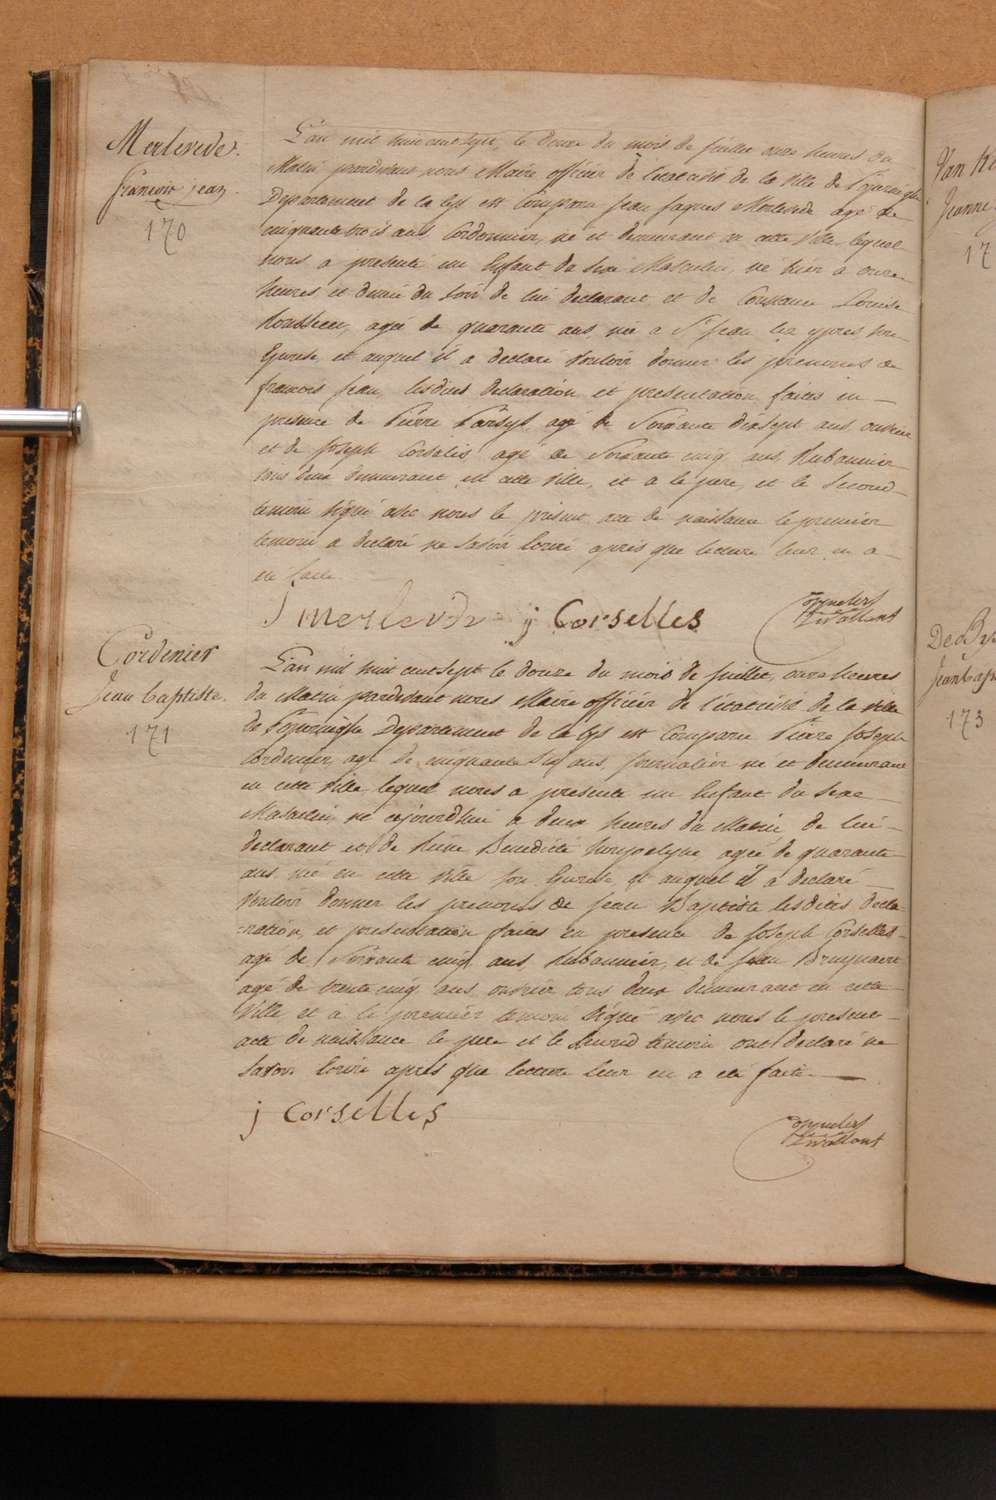 Merlevede.
françois jean
170
L'an mil huit cent sept, le douze du mois de juillet onze heures du
Matin pardevant nous Maire officier de l'état civil de la ville de Poperinghe
Département de la Lys est Comparu Jean Jaques Merlevede agé de
cinquante trois ans, Cordonnier, né et demeurant en cette Ville, lequel
nous a présenté un Enfant du sexe Masculin, né hier à onze
heures et demie du soir de lui declarant et de Constance Louise
agée de quarante ans, née a St Jean lez ypres, son
Epouse, et auquel il a declaré Vouloir donner les prénoms de
francois Jean, lesdites Declaration et presentation faites en
presence de Pierre agé de Soixante dixsept ans ouvrier
et de Joseph Corselis agé de Soixante cinq ans Rubannier
tous deux demeurant en cette Ville, et a le pere, et le Second
temoin signé avec nous le present acte de naissance le premier
temoin a declaré ne Savoir Ecrire après que lecture leur en a
été faite
j merlevede j Corselles
Cordenier
Jean Baptiste.
171
L'an mil huit cent sept le douze du mois de juillet, onze heures
du Matin pardevant nous Maire officier de l'état civil de la Ville
de Poperinghe Département de la Lys est Comparu Pierre Joseph
Cordenier agé de cinquante six ans, journalier né et demeurant
en cette Ville lequel nous a presenté un Enfant du sexe
Masculin, né cejourdhui à deux heures du Matin de lui
declarant et de Benedicte agée de quarante
ans née en cette Ville son Epouse, et auquel il a declaré
Vouloir donner les prenoms de Jean Baptiste lesdites decla-
-ration, et presentation faites en presence de Joseph Corselles
agé de Soixante cinq ans, Rubannier, et de Jean Bruynaert
agé de trente cinq ans, ouvrier tous deux demeurant en cette
Ville et a le premier temoin signé avec nous le present
acte de naissance le pere et le second temoin ont declaré ne
savoir Ecrire après que lecture leur en a été faite
j Corselles
Van
Jeanne
17
De
Jean Bap
173